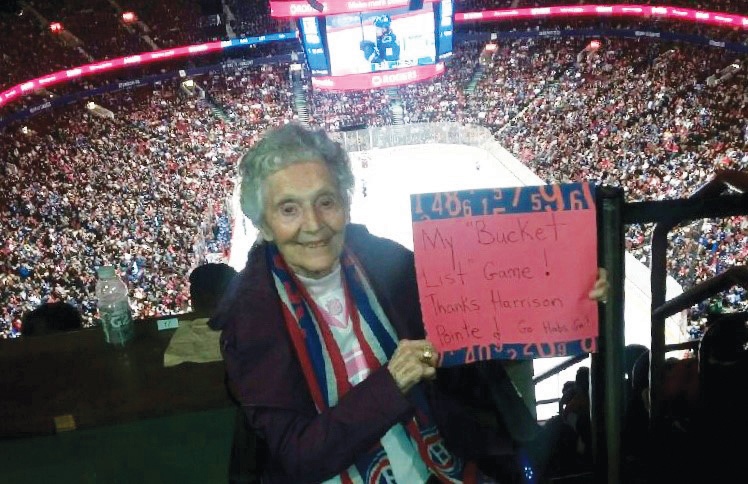 ROGERS
My "Bucket
List" Game!
Thanks Harrison
Pointe & Go Habs Go!!